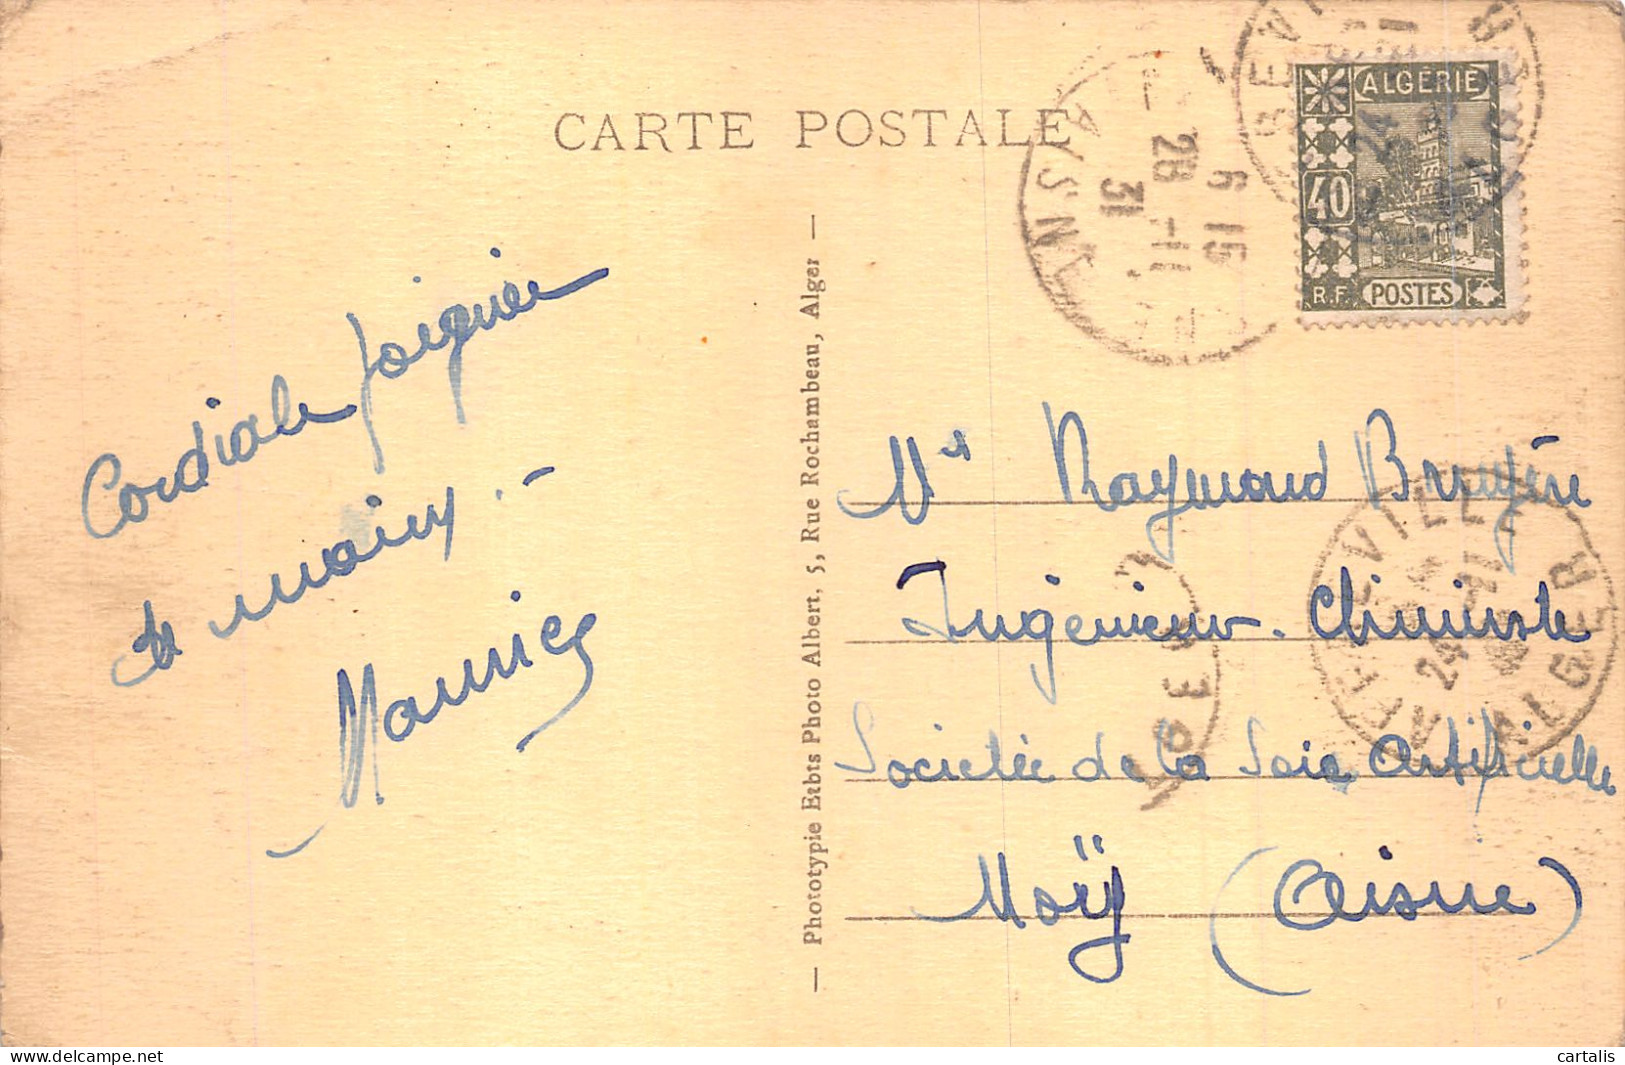 CARTE POSTALE
ALGÉRIE
40
R.F. POSTES
6 15
28 -11
31
Cordiale poignée
de mains.-
Maurice
— Phototypie Etbts Photo Albert, 5, Rue Rochambeau, Alger —
Mr Raymond Bruyère
Ingénieur-Chimiste
Société de la Soie Artificielle
Moÿ (Aisne)
ALGER
cartalis